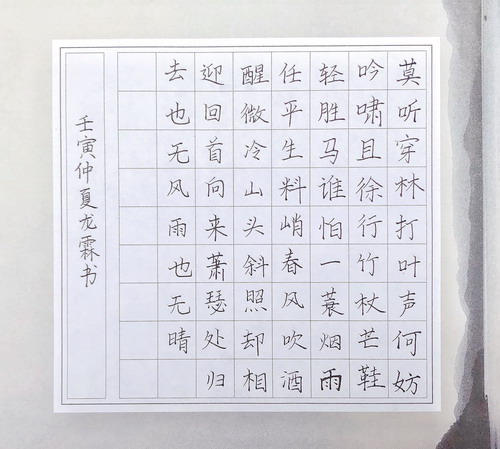 莫听穿林打叶声何妨
吟啸且徐行竹杖芒鞋
轻胜马谁怕一蓑烟雨
任平生料峭春风吹酒
醒微冷山头斜照却相
迎回首向来萧瑟处归
去也无风雨也无晴
壬寅仲夏龙霖书